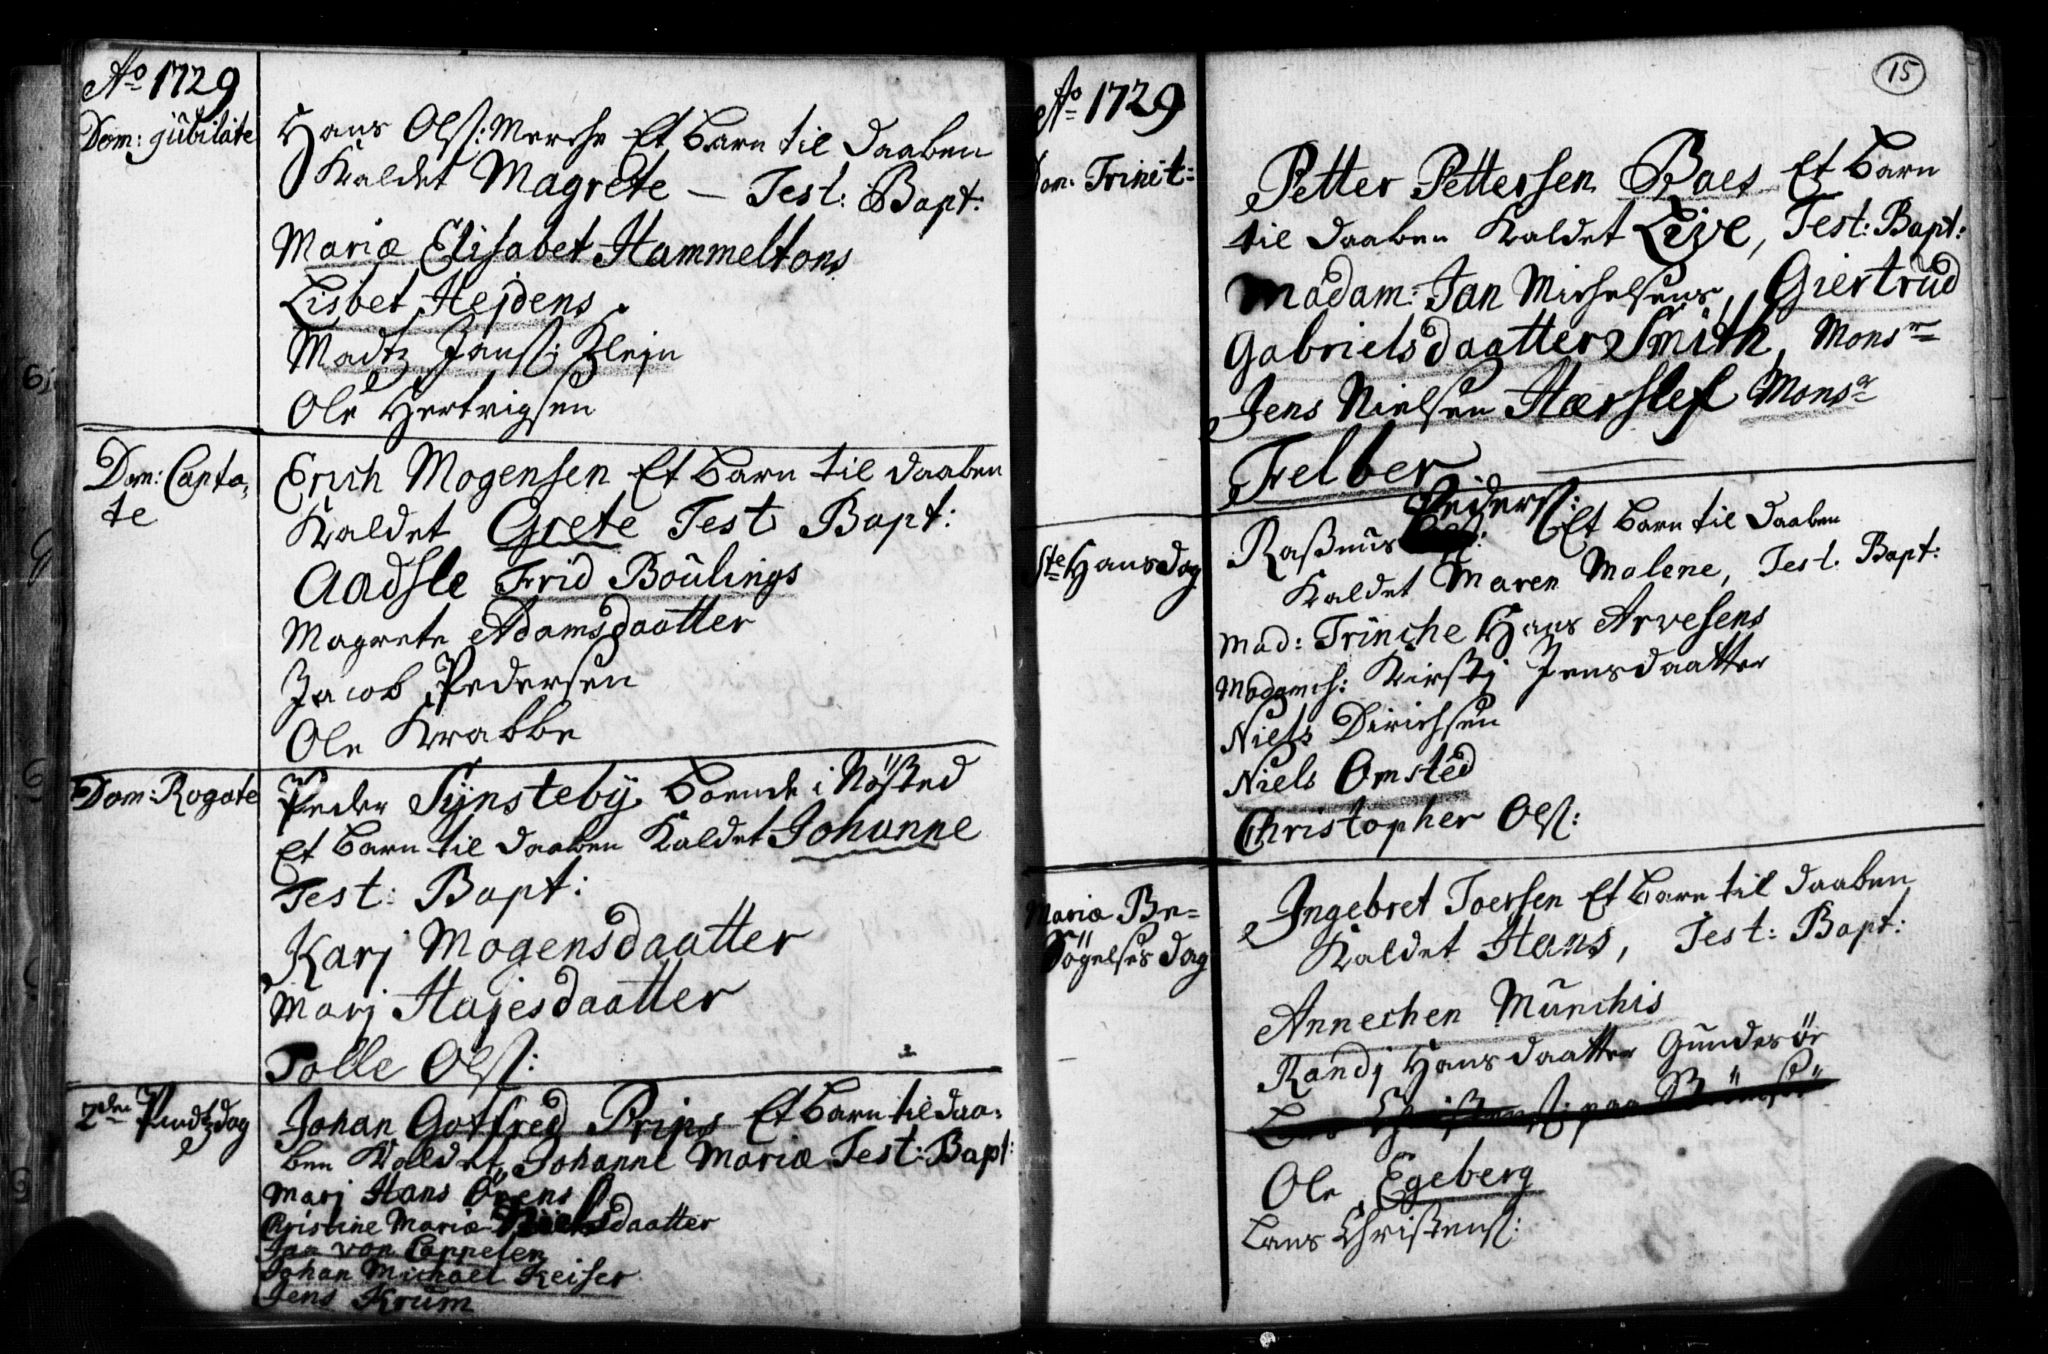 Ao 1729
Dom: Jubilate
Hans Olss: Merche Et Barn til Daaben
Kaldet Magrete — Test: Bapt:
Mariæ Elisabet Hammeltons
Lisbet Hejdens
Madtz Janss: Klejn
Ole Hertvigsen
Dom: Canta,
te
Erich Mogensen Et Barn til Daaben
Kaldet Grete Test Bapt:
Aadsle Frid Boulings
Magrete Adamsdaatter
Jacob Pedersen
Ole Krabbe
Dom: Rogate
Peder Sÿnstebÿ Boende i Nösted
Et Barn til Daaben Kaldet Johanne
Test: Bapt:
Karj Mogensdaatter
Marj Hajesdaatter
Tolle Olss:
2den Pindtzdag
Johan Gotfred Prips Et Barn til Daa,
ben Kaldet Johanne Mariæ Test: Bapt:
Marj Hans Örens
Kristine Mariæ Nielsdaatter
Jan von Cappelen
Johan Michael Keiser
Jens Krum
15
Ao 1729
Dom: Trinit:
Petter Pettersen Baes Et Barn
til Daaben Kaldet Live, Test: Bapt:
Madam: Jan Michelsens, Giertrud
Gabrielsdaatter Smith, Monsr
Jens Nielsen Hærslef Monsr
Felber
Ste Hansdag
Rasmus Pederss: Et Barn til Daaben
Kaldet Maren Malene, Test: Bapt:
Mad: Trinche Hans Arvesens
Madamch: Kirstj Jensdaatter
Niels Dirichsen
Niels Omsted
Christopher Olss:
Mariæ Be=
Sögelses Dag
Ingebret Toersen Et Barn til Daaben
Kaldet Hans, Test: Bapt:
Annechen Munchis
Randj Hansdaatter Gundesör
Lars Christenss: paa
Ole Egeberg
Lars Christenss: